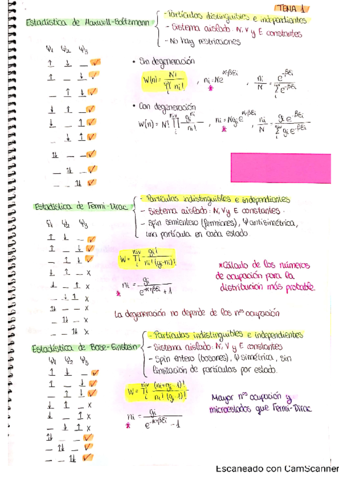 TEMA 1
Estadística de Maxwell-Boltzmann
- Partículas distinguibles e independientes
- Sistema aislado N, V y E constantes
- No hay restricciones
Ψ1 Ψ2 Ψ3
• Sin degeneración
W(n) = N! / ∏ ni! , ni = N e^α e^βEi , ni/N = e^βEi / Σ e^βEi
• Con degeneración
W(n) = N! ∏ gi^ni / ni! , ni = N gi e^α e^βEi , ni/N = gi e^βEi / Σ gi e^βEi
Estadística de Fermi-Dirac
- Partículas indistinguibles e independientes
- Sistema aislado N, V y E constantes
- Spin semientero (fermiones), Ψ antisimétrica,
una partícula en cada estado
Ψ1 Ψ2 Ψ3
W = ∏ gi! / ni! (gi-ni)!
*Cálculo de los números
de ocupación para la
distribución más probable.
La degeneración no depende de los nº ocupación
Estadística de Bose-Einstein
- Partículas indistinguibles e independientes
- Sistema aislado N, V y E constantes
- Spin entero (bosones), Ψ simétrica, sin
limitación de partículas por estado
Ψ1 Ψ2 Ψ3
Mayor nº ocupación y
microestados que Fermi-Dirac
Escaneado con CamScanner